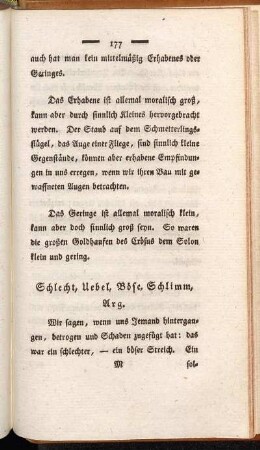 — 177 —
auch hat man kein mittelmäßig Erhabenes oder
Geringes.
Das Erhabene ist allemal moralisch groß,
kann aber durch sinnlich Kleines hervorgebracht
werden. Der Staub auf dem Schmetterlings-
flügel, das Auge einer Fliege, sind sinnlich kleine
Gegenstände, können aber erhabene Empfindun-
gen in uns erregen, wenn wir ihren Bau mit ge-
waffneten Augen betrachten.
Das Geringe ist allemal moralisch klein,
kann aber doch sinnlich groß seyn. So waren
die großen Goldhaufen des Crösus dem Solon
klein und gering.
Schlecht, Uebel, Böse, Schlimm,
Arg.
Wir sagen, wenn uns Jemand hintergan-
gen, betrogen und Schaden zugefügt hat: das
war ein schlechter, — ein böser Streich. Ein
M sol-